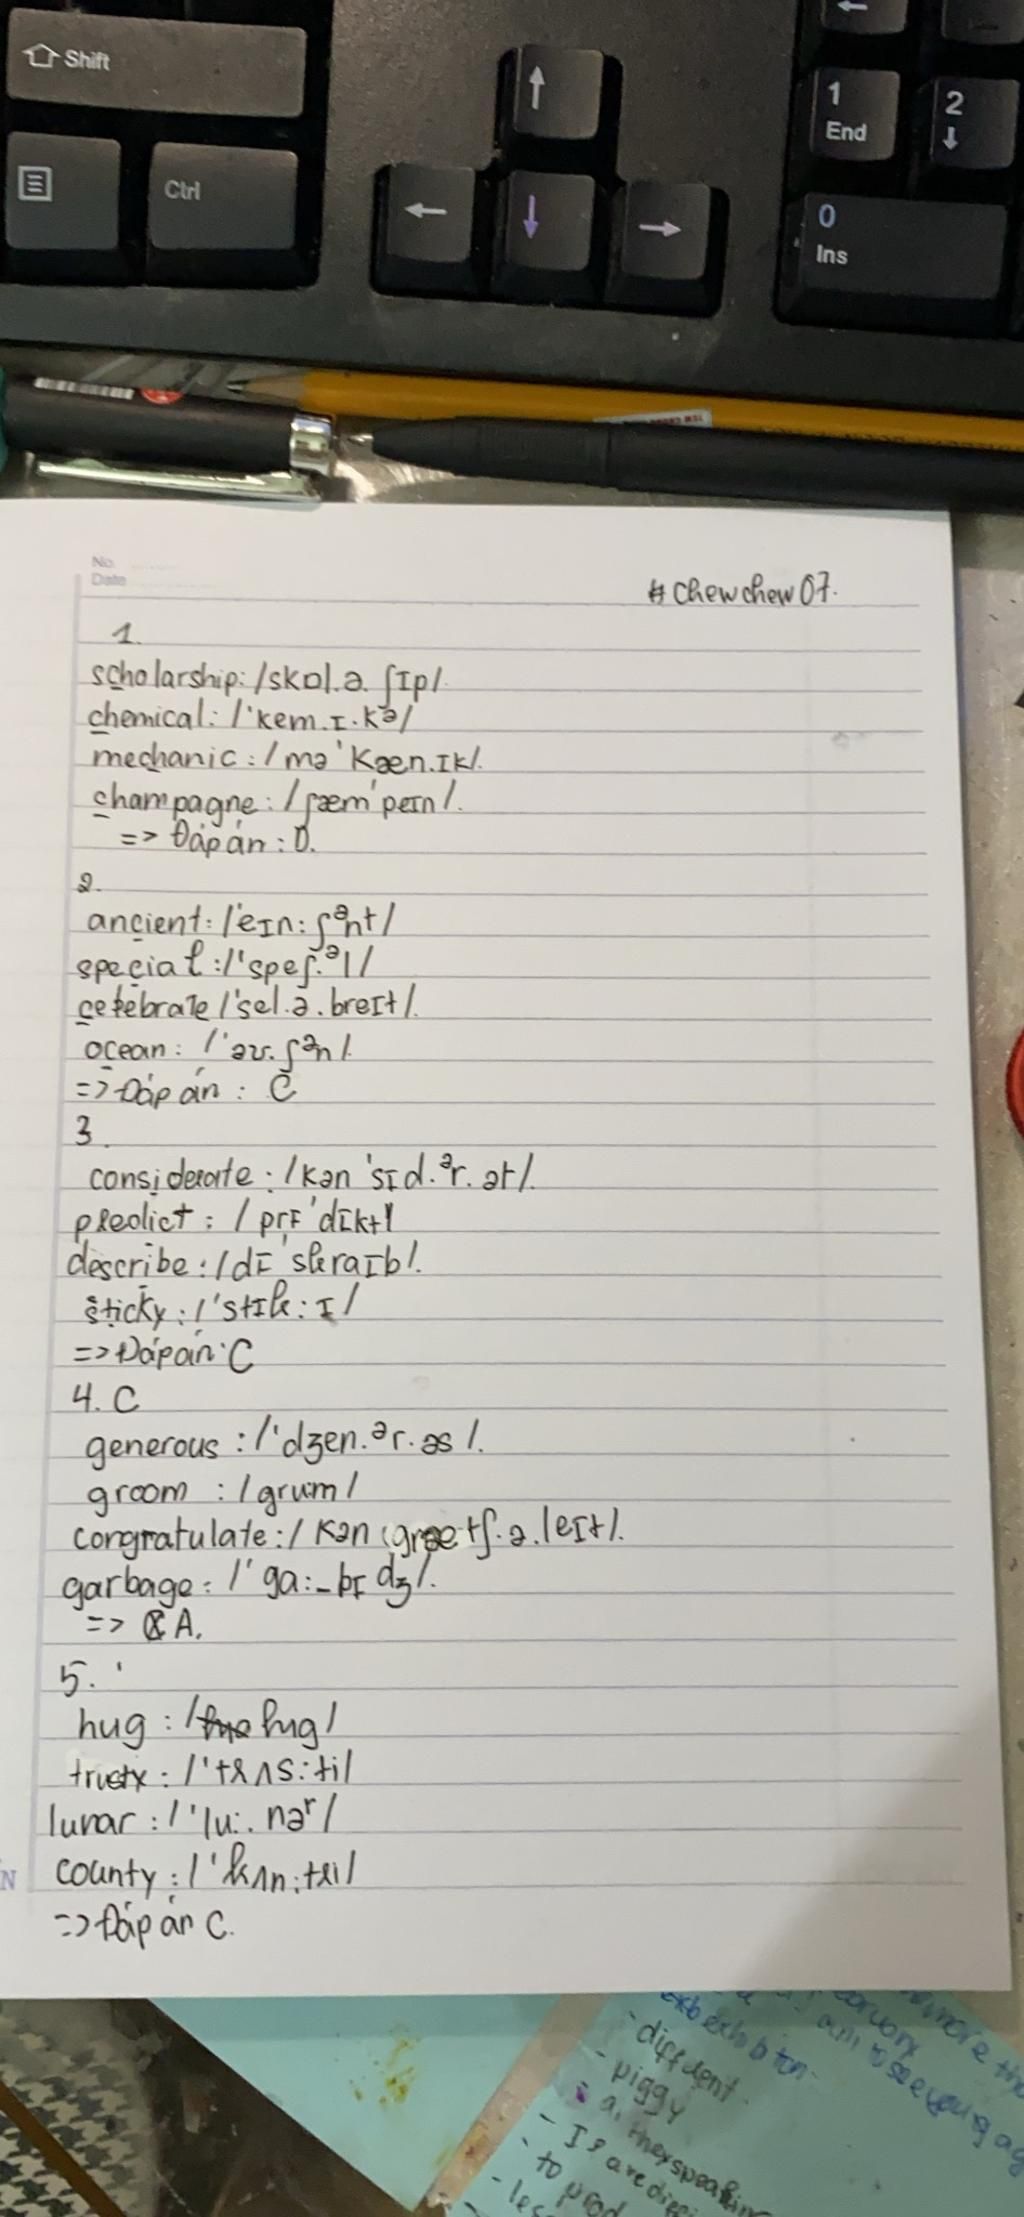 Shift
Ctrl
1
End
2
0
Ins
No.
Date
#chewchew07.
1.
scholarship: /skɒl.ə.ʃɪp/.
chemical: /'kem.ɪ.kəl/
mechanic: /mə'kæn.ɪk/.
champagne: /ʃæm'peɪn/.
=> Đáp án: D.
2.
ancient: /'eɪn:ʃənt/
special: /'speʃ.əl/
celebrate /'sel.ə.breɪt/.
ocean: /'əʊ.ʃən/.
=> Đáp án: C
3.
considerate: /kən'sɪd.ər.ət/.
predict: /prɪ'dɪkt/
describe: /dɪ'skraɪb/.
sticky: /'stɪk:ɪ/
=> Đáp án: C
4. C
generous: /'dʒen.ər.əs/.
groom: /grum/
congratulate: /kən'grætʃ.ə.leɪt/.
garbage: /'ga:-bɪdʒ/.
=> A.
5.
hug: /hug/
trusty: /'trʌs:ti/
lunar: /'lu:.nər/
county: /'kʌn:tri/
=> Đáp án C.
N
- different
- piggy
to prod